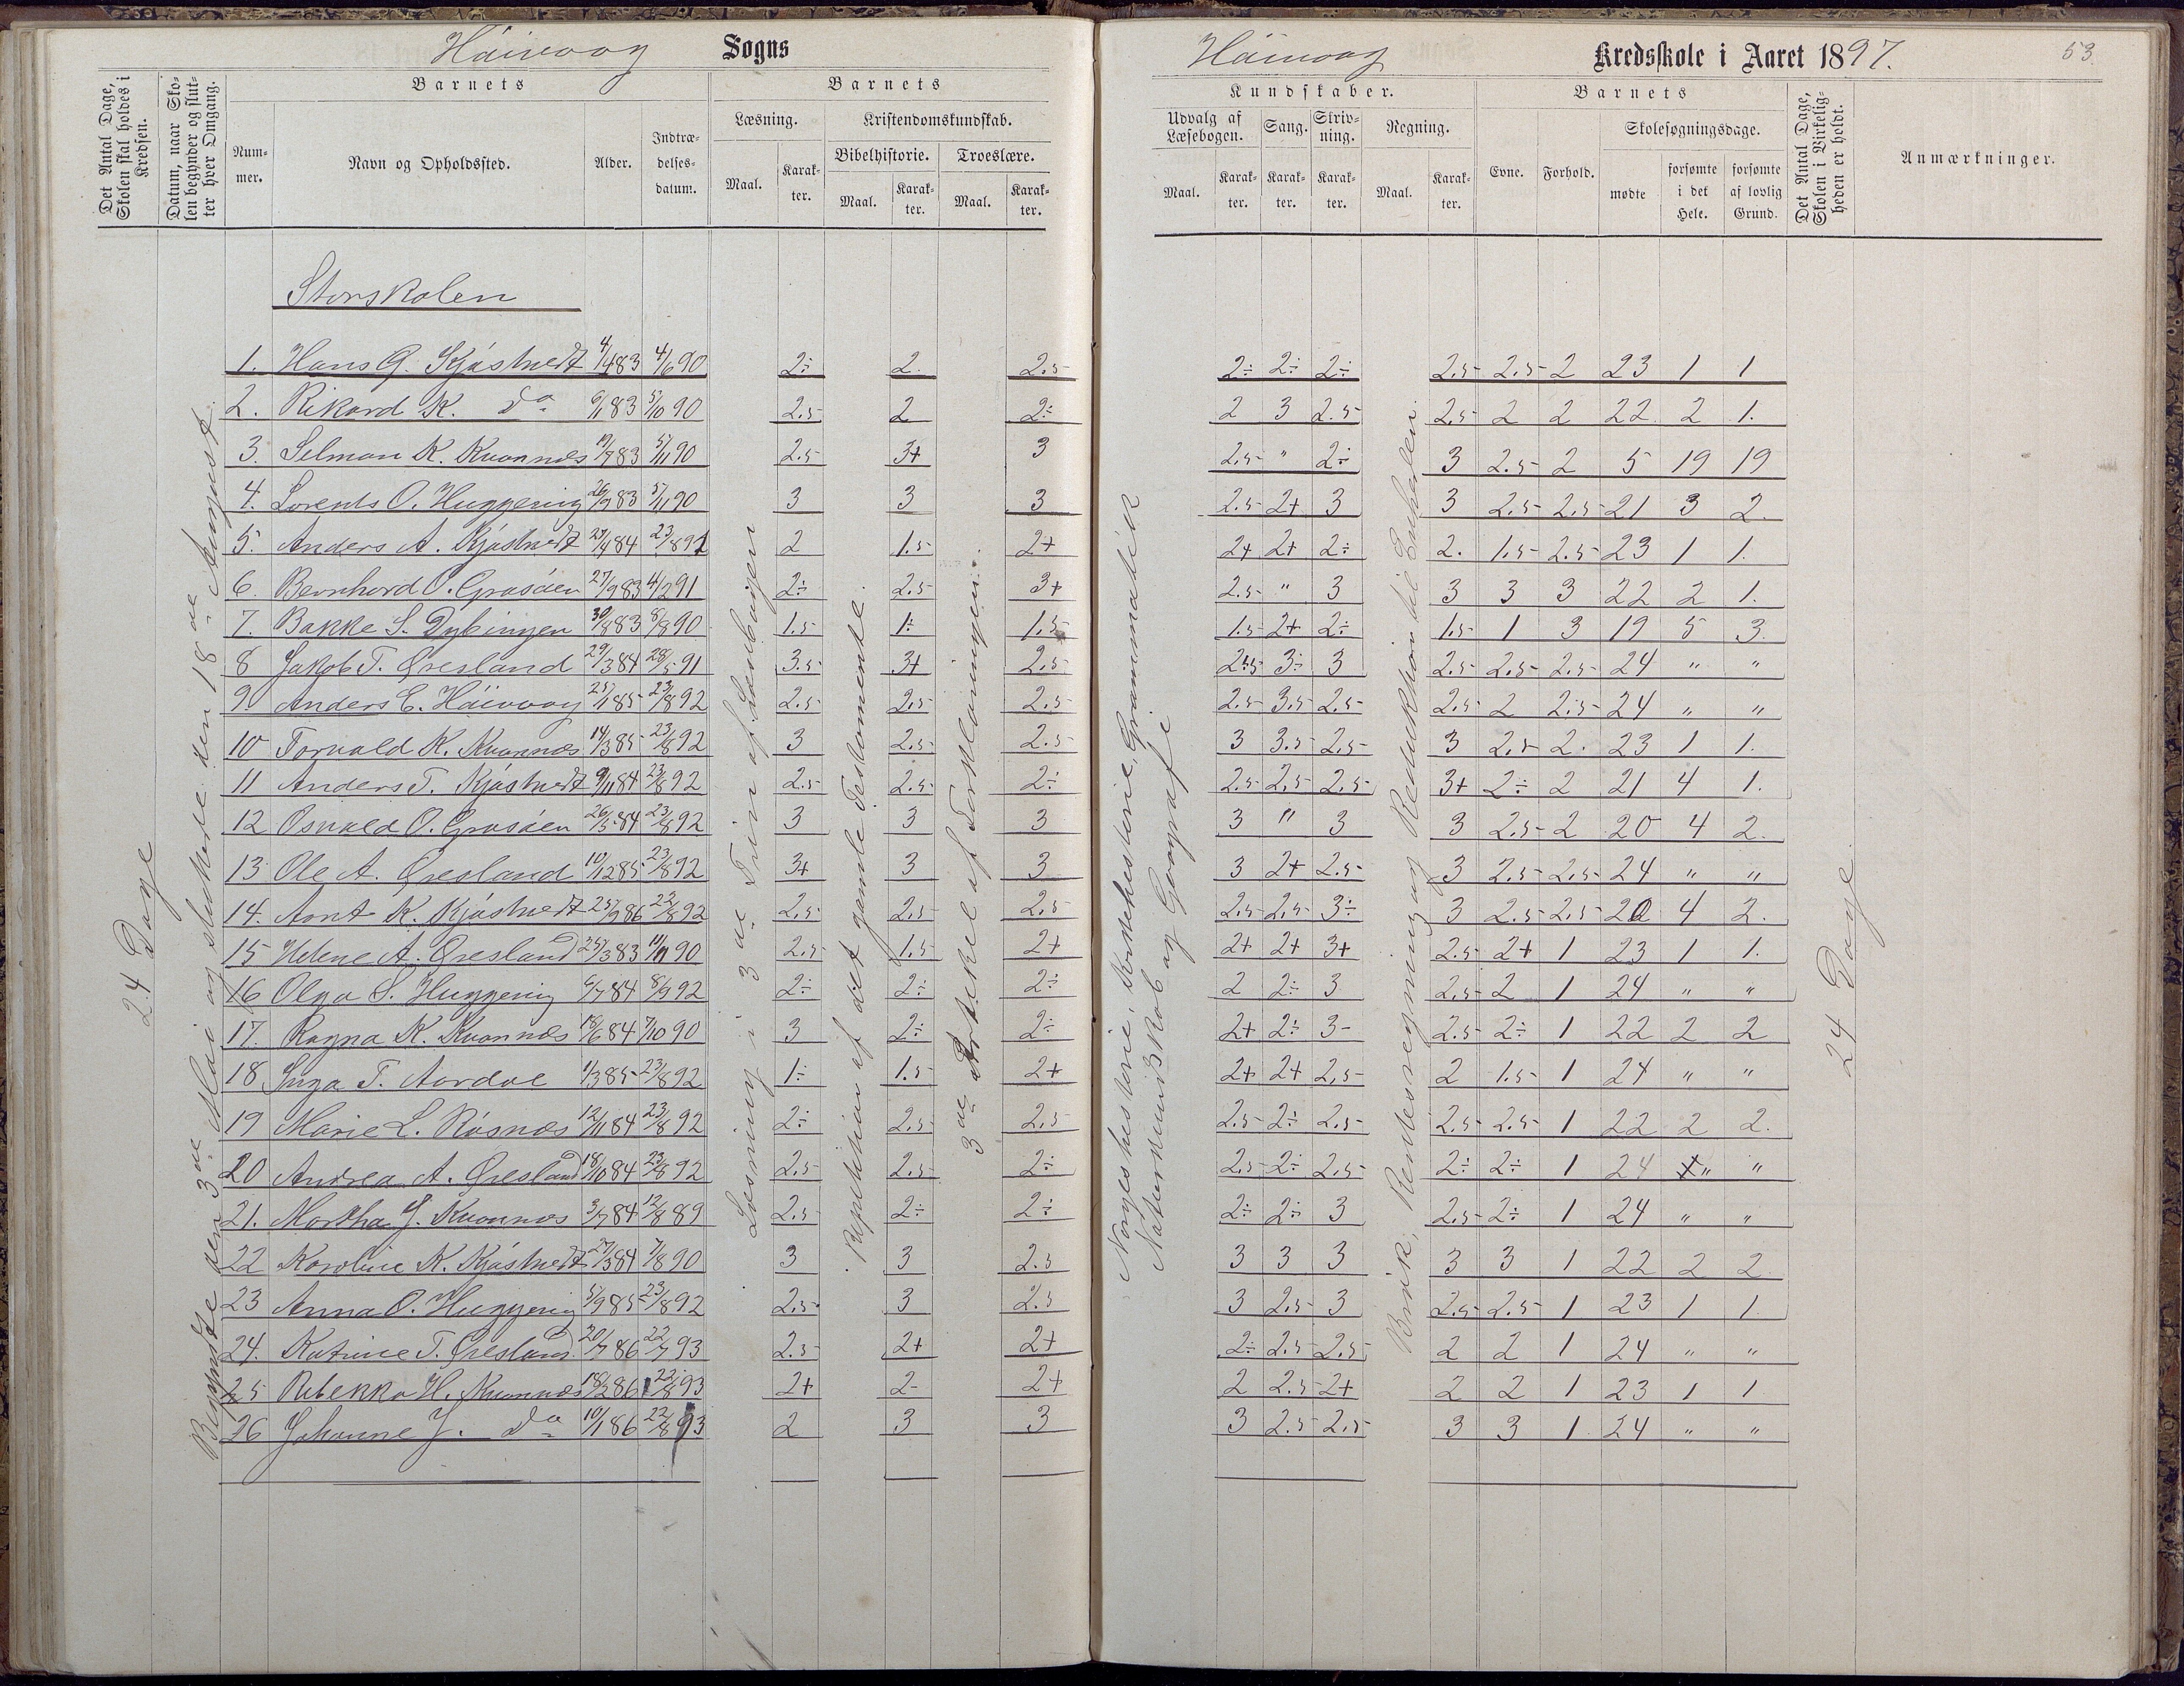 Häievaag Sogns
Häievaag Kredsskole i Aaret 1897.
53.
Det Antal Dage, Skolen skal holdes i Kredsen.
Datum, naar Skolen begynder og slutter hver Omgang.
Barnets
Nummer.
Navn og Opholdssted.
Alder.
Indtrædelsesdatum.
Barnets
Læsning.
Maal.
Karakter.
Kristendomskundskab.
Bibelhistorie.
Maal.
Karakter.
Troeslære.
Maal.
Karakter.
Kundskaber.
Udvalg af Læsebogen.
Maal.
Karakter.
Sang.
Karakter.
Skrivning.
Karakter.
Regning.
Maal.
Karakter.
Barnets
Evne.
Forhold.
Skolesøgningsdage.
mødte
forsømte i det Hele.
forsømte af lovlig Grund.
Det Antal Dage, Skolen i Virkeligheden er holdt.
Anmærkninger.
24 Dage
Begyndte den 3de Mai og sluttede den 18de August.
Storskolen
Læsning i 3de Trin af Læsebogen
Repetition af det gamle Testamente.
3de Artikel af Forklaringen.
Norgeshistorie, Kirkehistorie, Grammatik
Naturkundskab og Geografi
Brøk, Rentesregning og Reduktion til Enheden.
24 Dage.
1. Hans G. Kjøstvedt 4/4 83 4/6 90 2÷ 2. 2.5 2÷ 2÷ 2÷ 2.5 2.5 2 23 1 1
2. Rikard K. do 6/1 83 5/10 90 2.5 2 2÷ 2 3 2.5 2.5 2 2 22 2 1.
3. Selman K. Kvannes 19/7 83 5/11 90 2.5 3+ 3 2.5 " 2÷ 3 2.5 2 5 19 19
4. Lorents O. Huggenig 26/9 83 5/11 90 3 3 3 2.5 2+ 3 3 2.5 2.5 21 3 2.
5. Anders A. Kjøstvedt 27/4 84 23/8 92 2 1.5 2+ 2+ 2+ 2÷ 2. 1.5 2.5 23 1 1.
6. Bernhard O. Grasøen 27/9 83 4/2 91 2÷ 2.5 3+ 2.5 " 3 3 3 3 22 2 1.
7. Bakke S. Dybingen 30/8 83 8/8 90 1.5 1÷ 1.5 1.5 2+ 2÷ 1.5 1 3 19 5 3.
8 Jakob T. Øresland 29/3 84 28/5 91 3.5 3+ 2.5 2.5 3÷ 3 2.5 2.5 2.5 24 " "
9. Anders E. Häievaag 25/1 85 23/8 92 2.5 2.5 2.5 2.5 3.5 2.5 2.5 2 2.5 24 " "
10 Torvald K. Kvannes 14/3 85 23/8 92 3 2.5 2.5 3 3.5 2.5 3 2.5 2. 23 1 1.
11 Anders T. Kjøstvedt 9/11 84 23/8 92 2.5 2.5 2÷ 2.5 2.5 2.5 3+ 2÷ 2 21 4 1.
12 Osvald O. Grasøen 26/5 84 23/8 92 3 3 3 3 " 3 3 2.5 2 20 4 2.
13 Ole A. Øresland 10/12 85 23/8 92 3+ 3 3 3 2+ 2.5 3 2.5 2.5 24 " "
14. Arnt K. Kjøstvedt 25/9 86 22/8 92 2.5 2.5 2.5 2.5 2.5 3÷ 3 2.5 2.5 20 4 2.
15 Helene A. Øresland 25/3 83 11/11 90 2.5 1.5 2+ 2+ 2+ 3+ 2.5 2+ 1 23 1 1.
16 Olga S. Huggenig 6/7 84 8/9 92 2÷ 2÷ 2÷ 2 2÷ 3 2.5 2 1 24 " "
17. Ragna K. Kvannes 18/6 84 7/10 90 3 2÷ 2÷ 2+ 2÷ 3- 2.5 2÷ 1 22 2 2
18 Inga T. Aardal 1/3 85 23/8 92 1÷ 1.5 2+ 2+ 2+ 2.5 2 1.5 1 24 " "
19 Marie L. Røsnæs 12/11 84 23/8 92 2÷ 2.5 2.5 2.5 2÷ 2.5 2.5 2.5 1 22 2 2.
20 Andrea A. Øresland 18/10 84 23/8 92 2.5 2.5 2÷ 2.5 2÷ 2.5 2÷ 2÷ 1 24 " "
21. Martha G. Kvannes 3/7 84 12/8 89 2.5 2÷ 2÷ 2÷ 2÷ 3 2.5 2÷ 1 24 " "
22 Karoline K. Kjøstvedt 27/3 84 7/8 90 3 3 2.5 3 3 3 3 3 1 22 2 2.
23 Anna O. Huggenig 5/9 85 23/8 92 2.5 3 2.5 3 2.5 3 2.5 2.5 1 23 1 1.
24. Katrine T. Øresland 20/7 86 22/7 93 2.5 2+ 2+ 2÷ 2.5 2.5 2 2 1 24 " "
25 Rebekka H. Kvannes 18/2 86 22/8 93 2+ 2- 2+ 2 2.5 2+ 2 2 1 23 1 1
26 Johanne J. do 10/1 86 22/8 93 2 3 3 3 2.5 2.5 3 3 1 24 " "